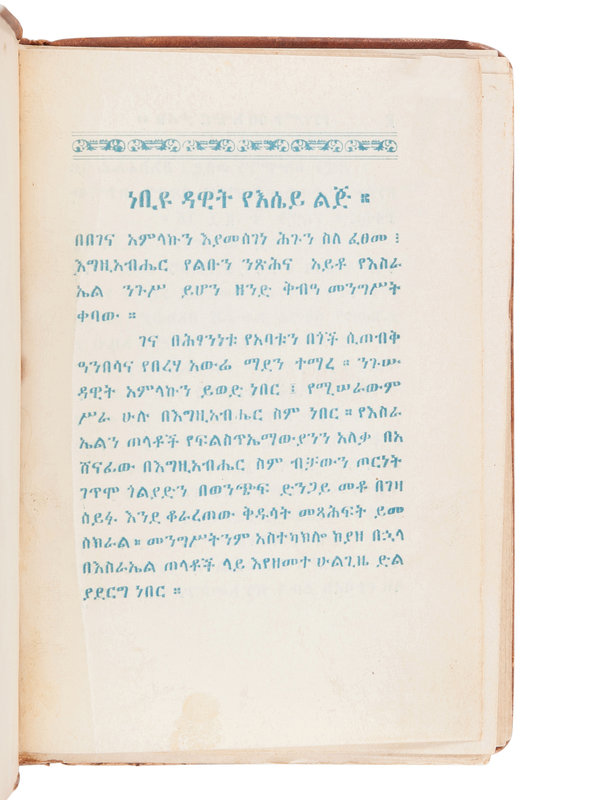 ነቢዩ ዳዊት የእሴይ ልጅ ።
በበገና አምላኩን እያመሰገነ ሕጉን ስለ ፈፀመ ፤
እግዚአብሔር የልቡን ንጽሕና አይቶ የእስራ
ኤል ንጉሥ ይሆን ዘንድ ቅብዓ መንግሥት
ቀባው ።
ገና በሕፃንነቱ የአባቱን በጎች ሲጠብቅ
ዓንበሳና የበረሃ አውሬ ማደን ተማረ ። ንጉሡ
ዳዊት አምላኩን ይወድ ነበር ፤ የሚሠራውም
ሥራ ሁሉ በእግዚአብሔር ስም ነበር ። የእስራ
ኤልን ጠላቶች የፍልስጥኤማውያንን አለቃ በአ
ሸናፊው በእግዚአብሔር ስም ብቻውን ጦርነት
ገጥሞ ጎልያድን በወንጭፍ ድንጋይ መቶ በገዛ
ሰይፉ እንደ ቆራረጠው ቅዱሳት መጻሕፍት ይመ
ሰክራል ። መንግሥትንም አስተካክሎ ከያዘ በኋላ
በእስራኤል ጠላቶች ላይ እየዘመተ ሁልጊዜ ድል
ያደርግ ነበር ።